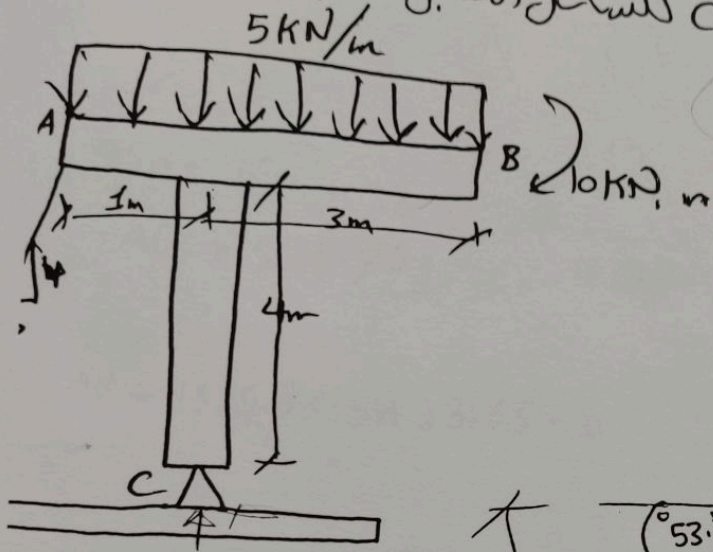 5KN/m
A
B
10KN.m
1m
3m
4m
C
53.